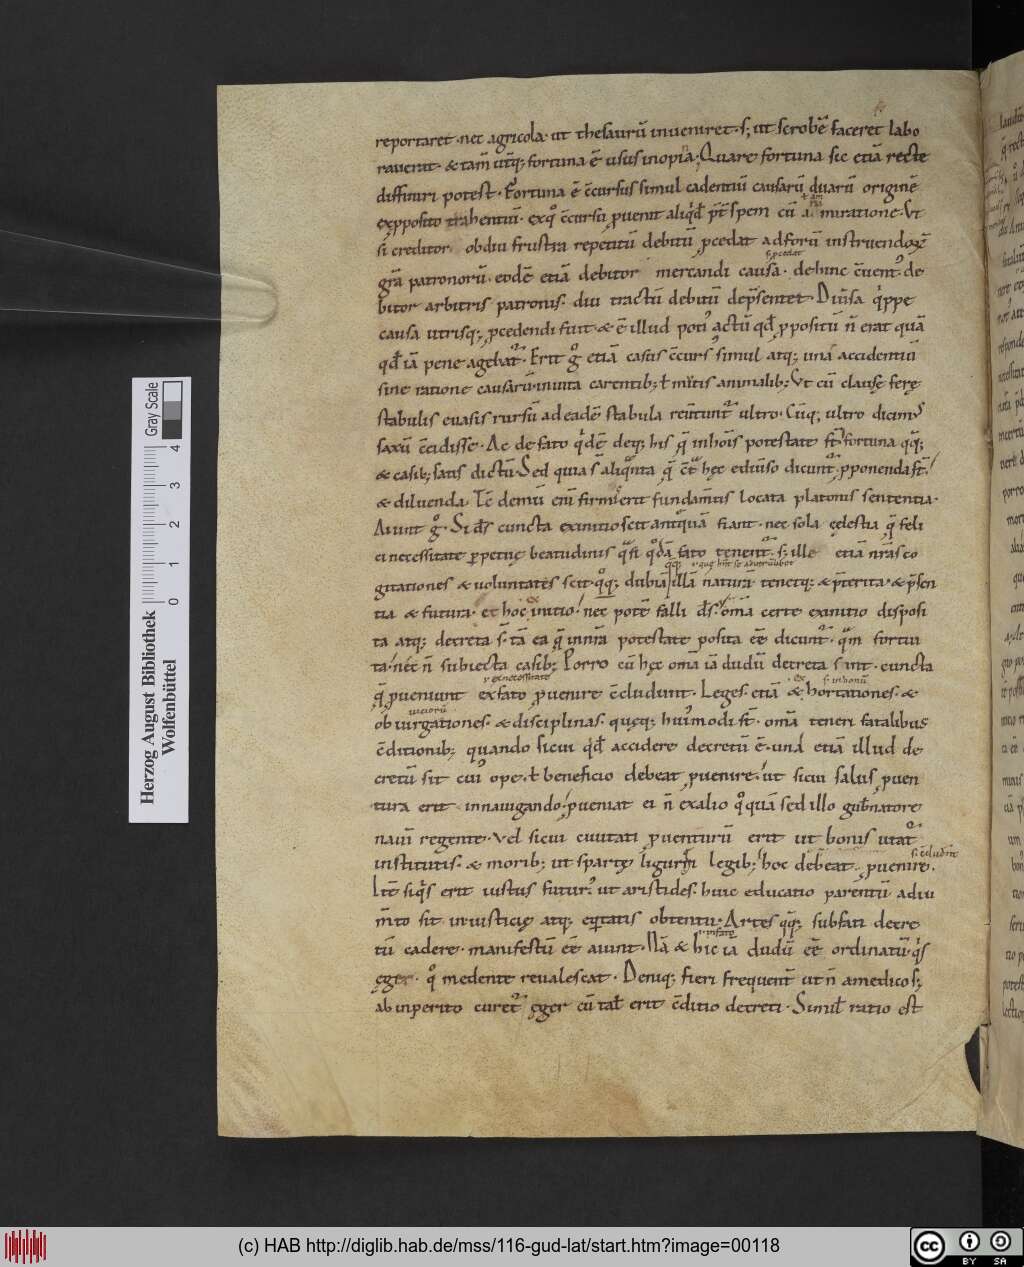 reportaret· nec agricola· ut thesaurū inveniret· s; ut scrobē faceret labo
raverat· & tam̄ utq; fortuna ē usus inopia; Quare fortuna sic etiā recte
diffiniri potest· Fortuna ē c̄cursus simul cadentiū causarū duarū originē
ex pposito trahentiū· ex q̊ c̄cursu puenit aliqd p̄t spem cū amiratione· Ut
si creditor ob diu frustra repetitū debitū pcedat ad forū instruendorȩ
grā patronorū· eodē etiā debitor mercandi causā· dehinc c̄venit de
s· pcedat
bitor arbitris patronis· diu tractū debitū dep̄sentet· Divsa qippe
causa utrisq; pcedendi fuit & ē illud poti' actū qđ ppositū n̄ erat quā
qđ iā pene agebat· Erit g̊ etiā casus c̄curs' simul atq; unā accidentiū
sine ratione causarū inuita carentib; ł mutis animalib; Ut cū clausȩ ferȩ
stabulis evasis rursū ad eadē stabula revtunt' ultro· Cūq; ultro dicim'
saxū c̄cidisse· Ac de fato qidē deq; his q̄ in hoīs potestate st̄ fortuna qq;
& casib; satis dictū· Sed quia s̄ aliqnta q̄ c̄t hȩc ediuso dicunt' pponenda st̄
& diluenda· Tc̄ demū eni firmi' erit fundam̄tis locata platonis sententia·
Aiunt g̊· Si ds̄ cuncta ex initio scit antquā fiant· nec sola cȩlestia q̄ feli
ci necessitate ppetuȩ beatudinis qsi qdā fato tenent' s; ille etiā nr̄as co
gitationes & voluntates scit· qq; dubia illā naturā tenetq; & p̄terita· & p̄sen
tia & futura· et hoc ex initio· nec potē falli ds̄· omā certe ex initio disposi
ta atq; decreta s̄· tā ea q̄ in nr̄a potestate posita eē dicunt· qm̄ fortui
ta· nec n̄ subiecta casib; Porro cū hȩc oma iā dudū decreta sint· cuncta
r ex necessitate
q̄ pueniunt ex fato puenire c̄cludunt· Leges etiā & hortationes· &
obiurgationes· & disciplinas· quȩq; hui'modi st̄· omā teneri fatalibus
c̄ditionib; quando si cui qđ accidere decretū ē· unā etiā illud de
cretū sit cui' ope· ł beneficio debeat puenire· ut si cui salus puen
tura erit in navigando· pueniat ei n̄ ex alio q̊quā sed illo gub̄natore
navī regente· Vel si cui civitati puenturū erit ut bonis utat'
institutis· & morib; ut spartȩ ligurgi legib; hoc debeat puenire·
Itē siqs erit iustus futur' ut aristides· huic educatio parentū adiu
m̄to sit in iusticiȩ atq; eqitatis obtentu· Artes qq; sub fati decre
tū cadere· manifestū eē aiunt· Nā & hic iā dudū eē ordinatū· qs
ȩger q̊ medente revalescat· Deniq; fieri frequent' ut n̄ a medico s;
ab inperito curet' ȩger cū tal' erit c̄ditio decreti· Simil' ratio est
Herzog August Bibliothek
Wolfenbüttel
0 1 2 3 4
Gray Scale
(c) HAB http://diglib.hab.de/mss/116-gud-lat/start.htm?image=00118
cc BY SA